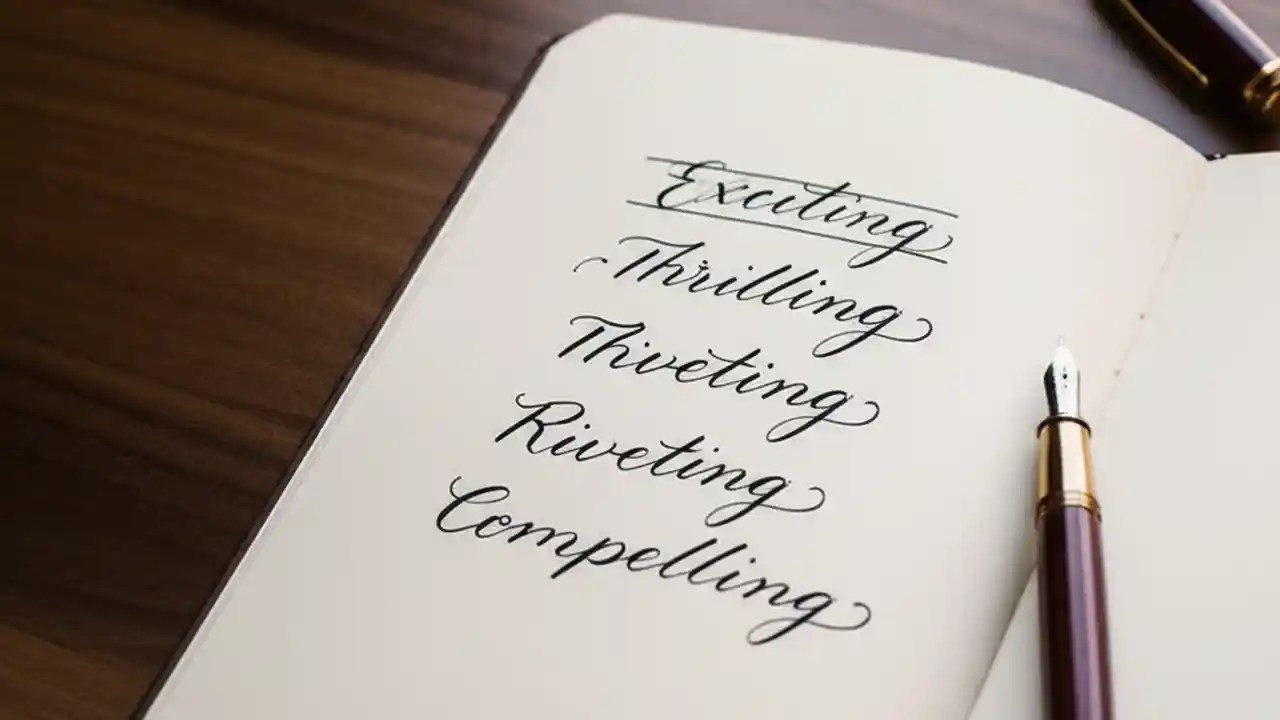 Exciting
Thrilling
Thiveting
Riveting
Compelling